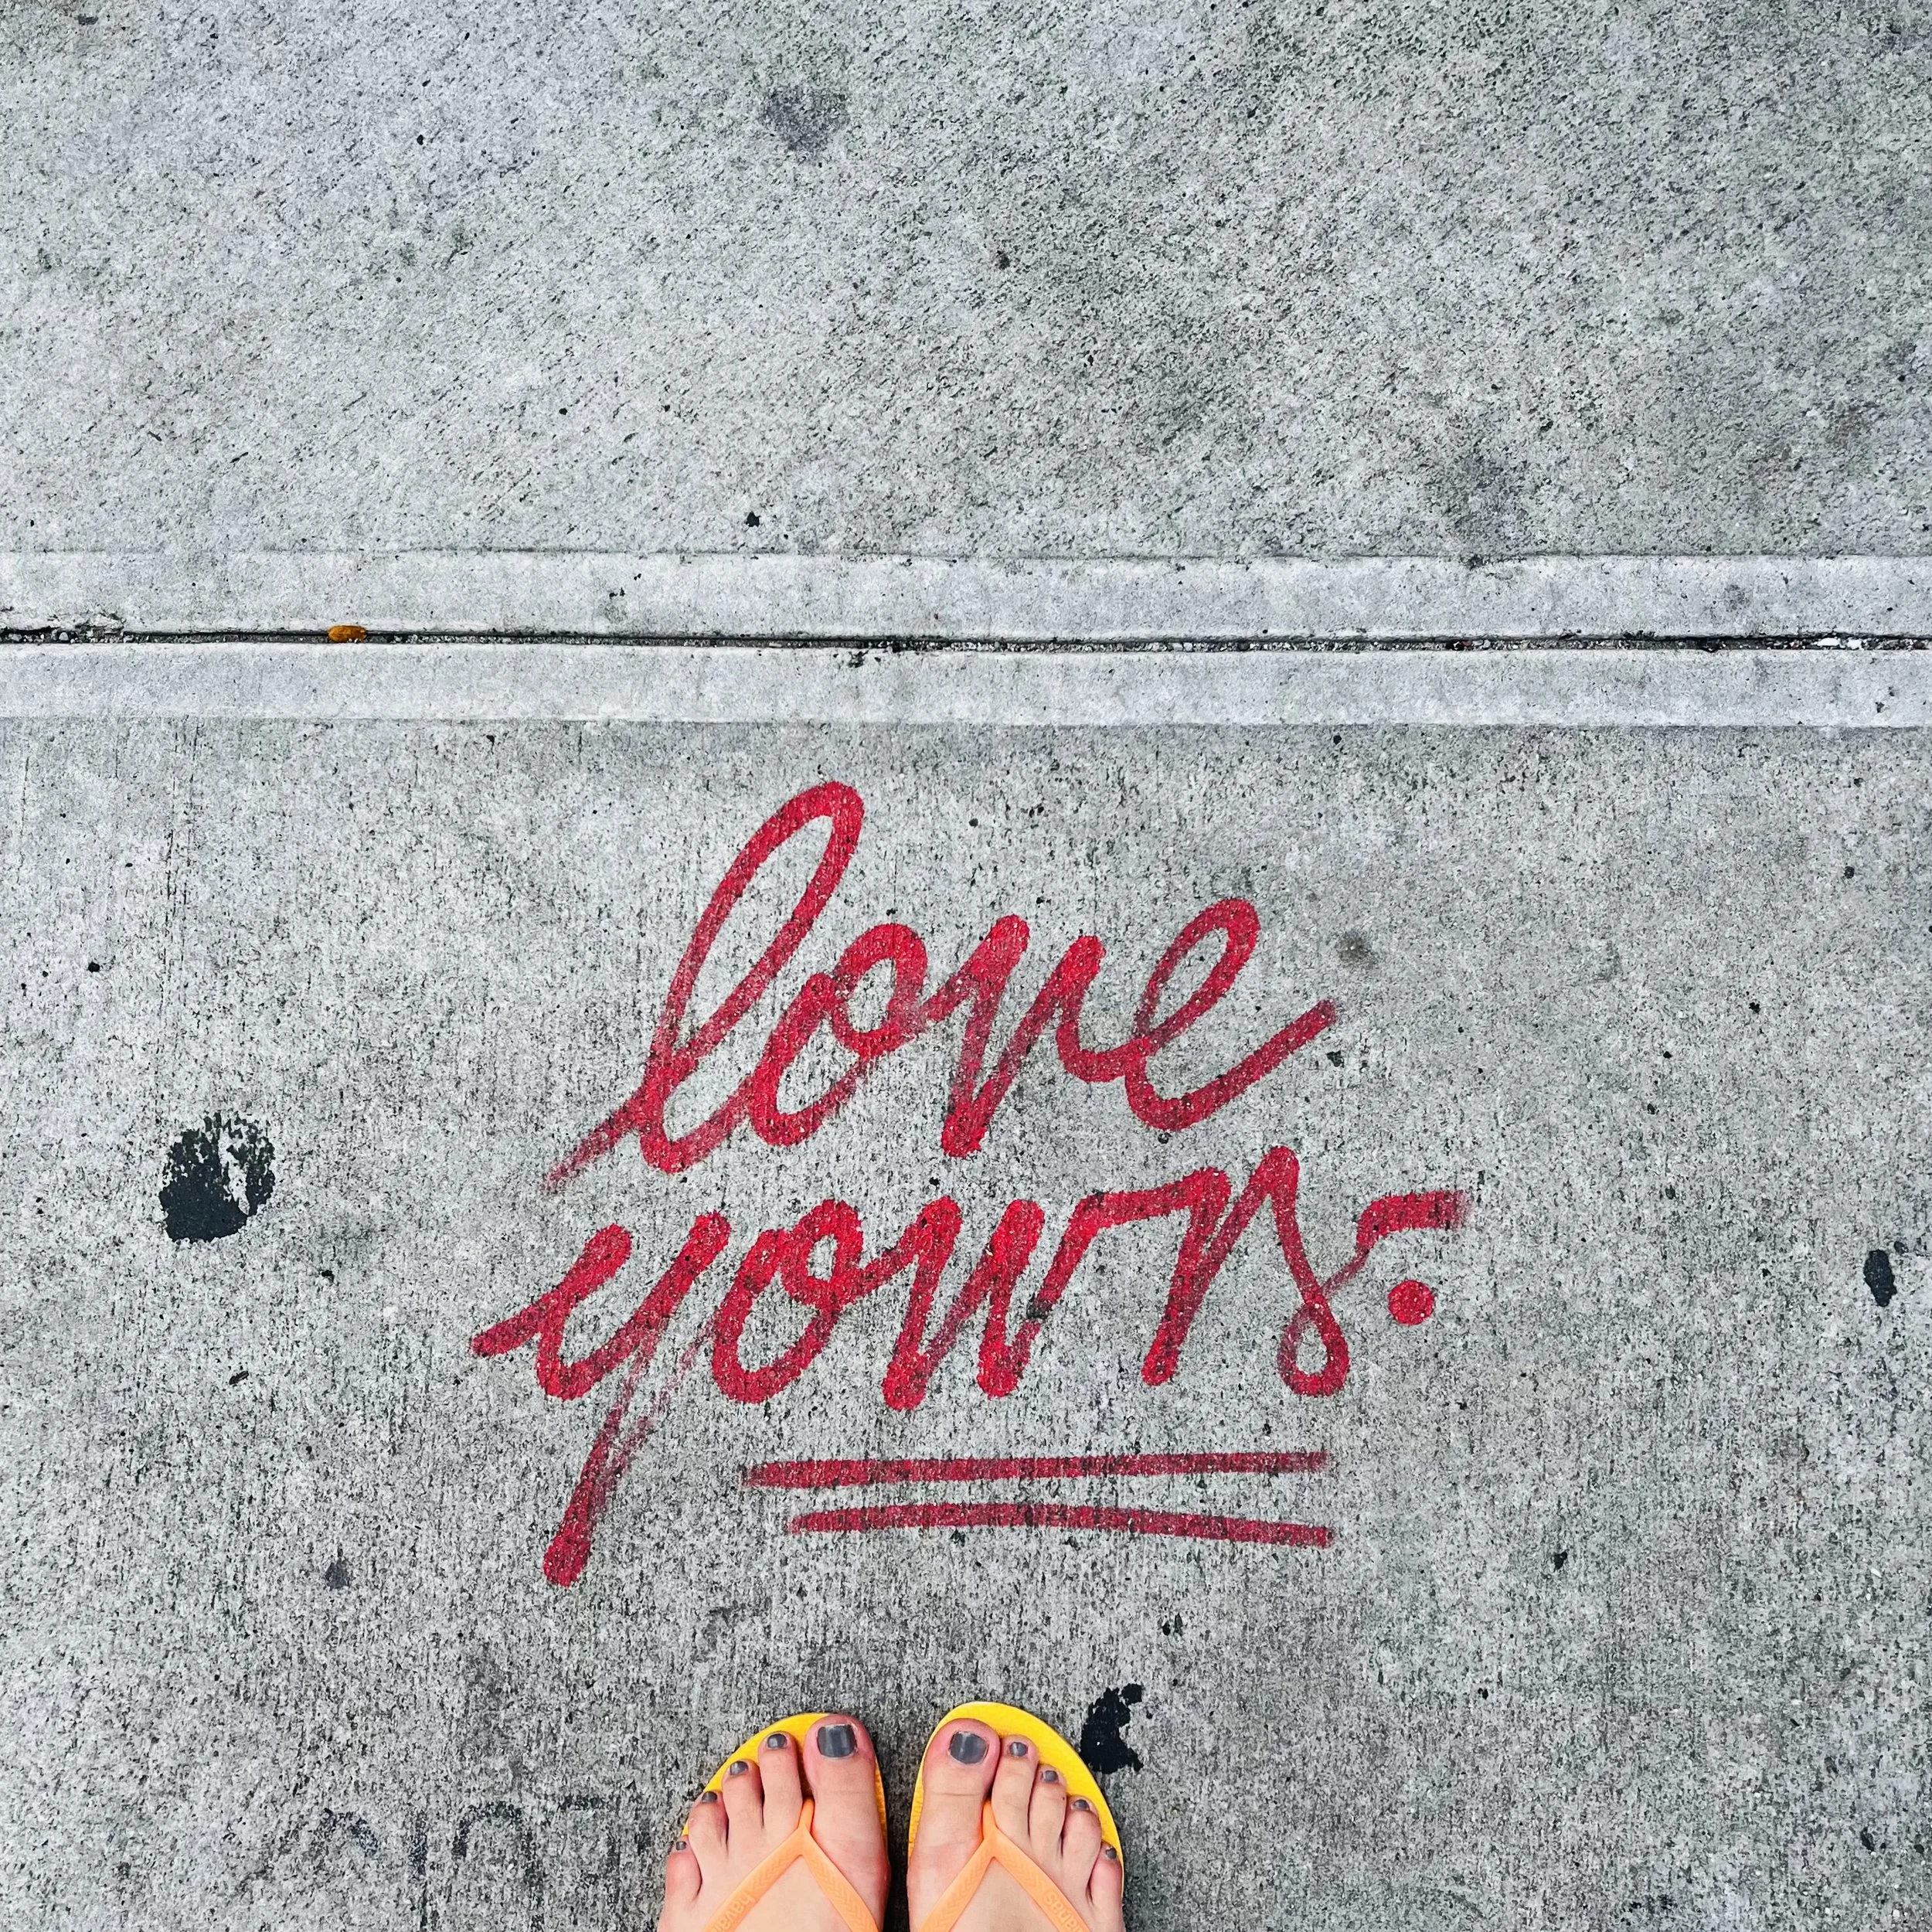 love
yours.